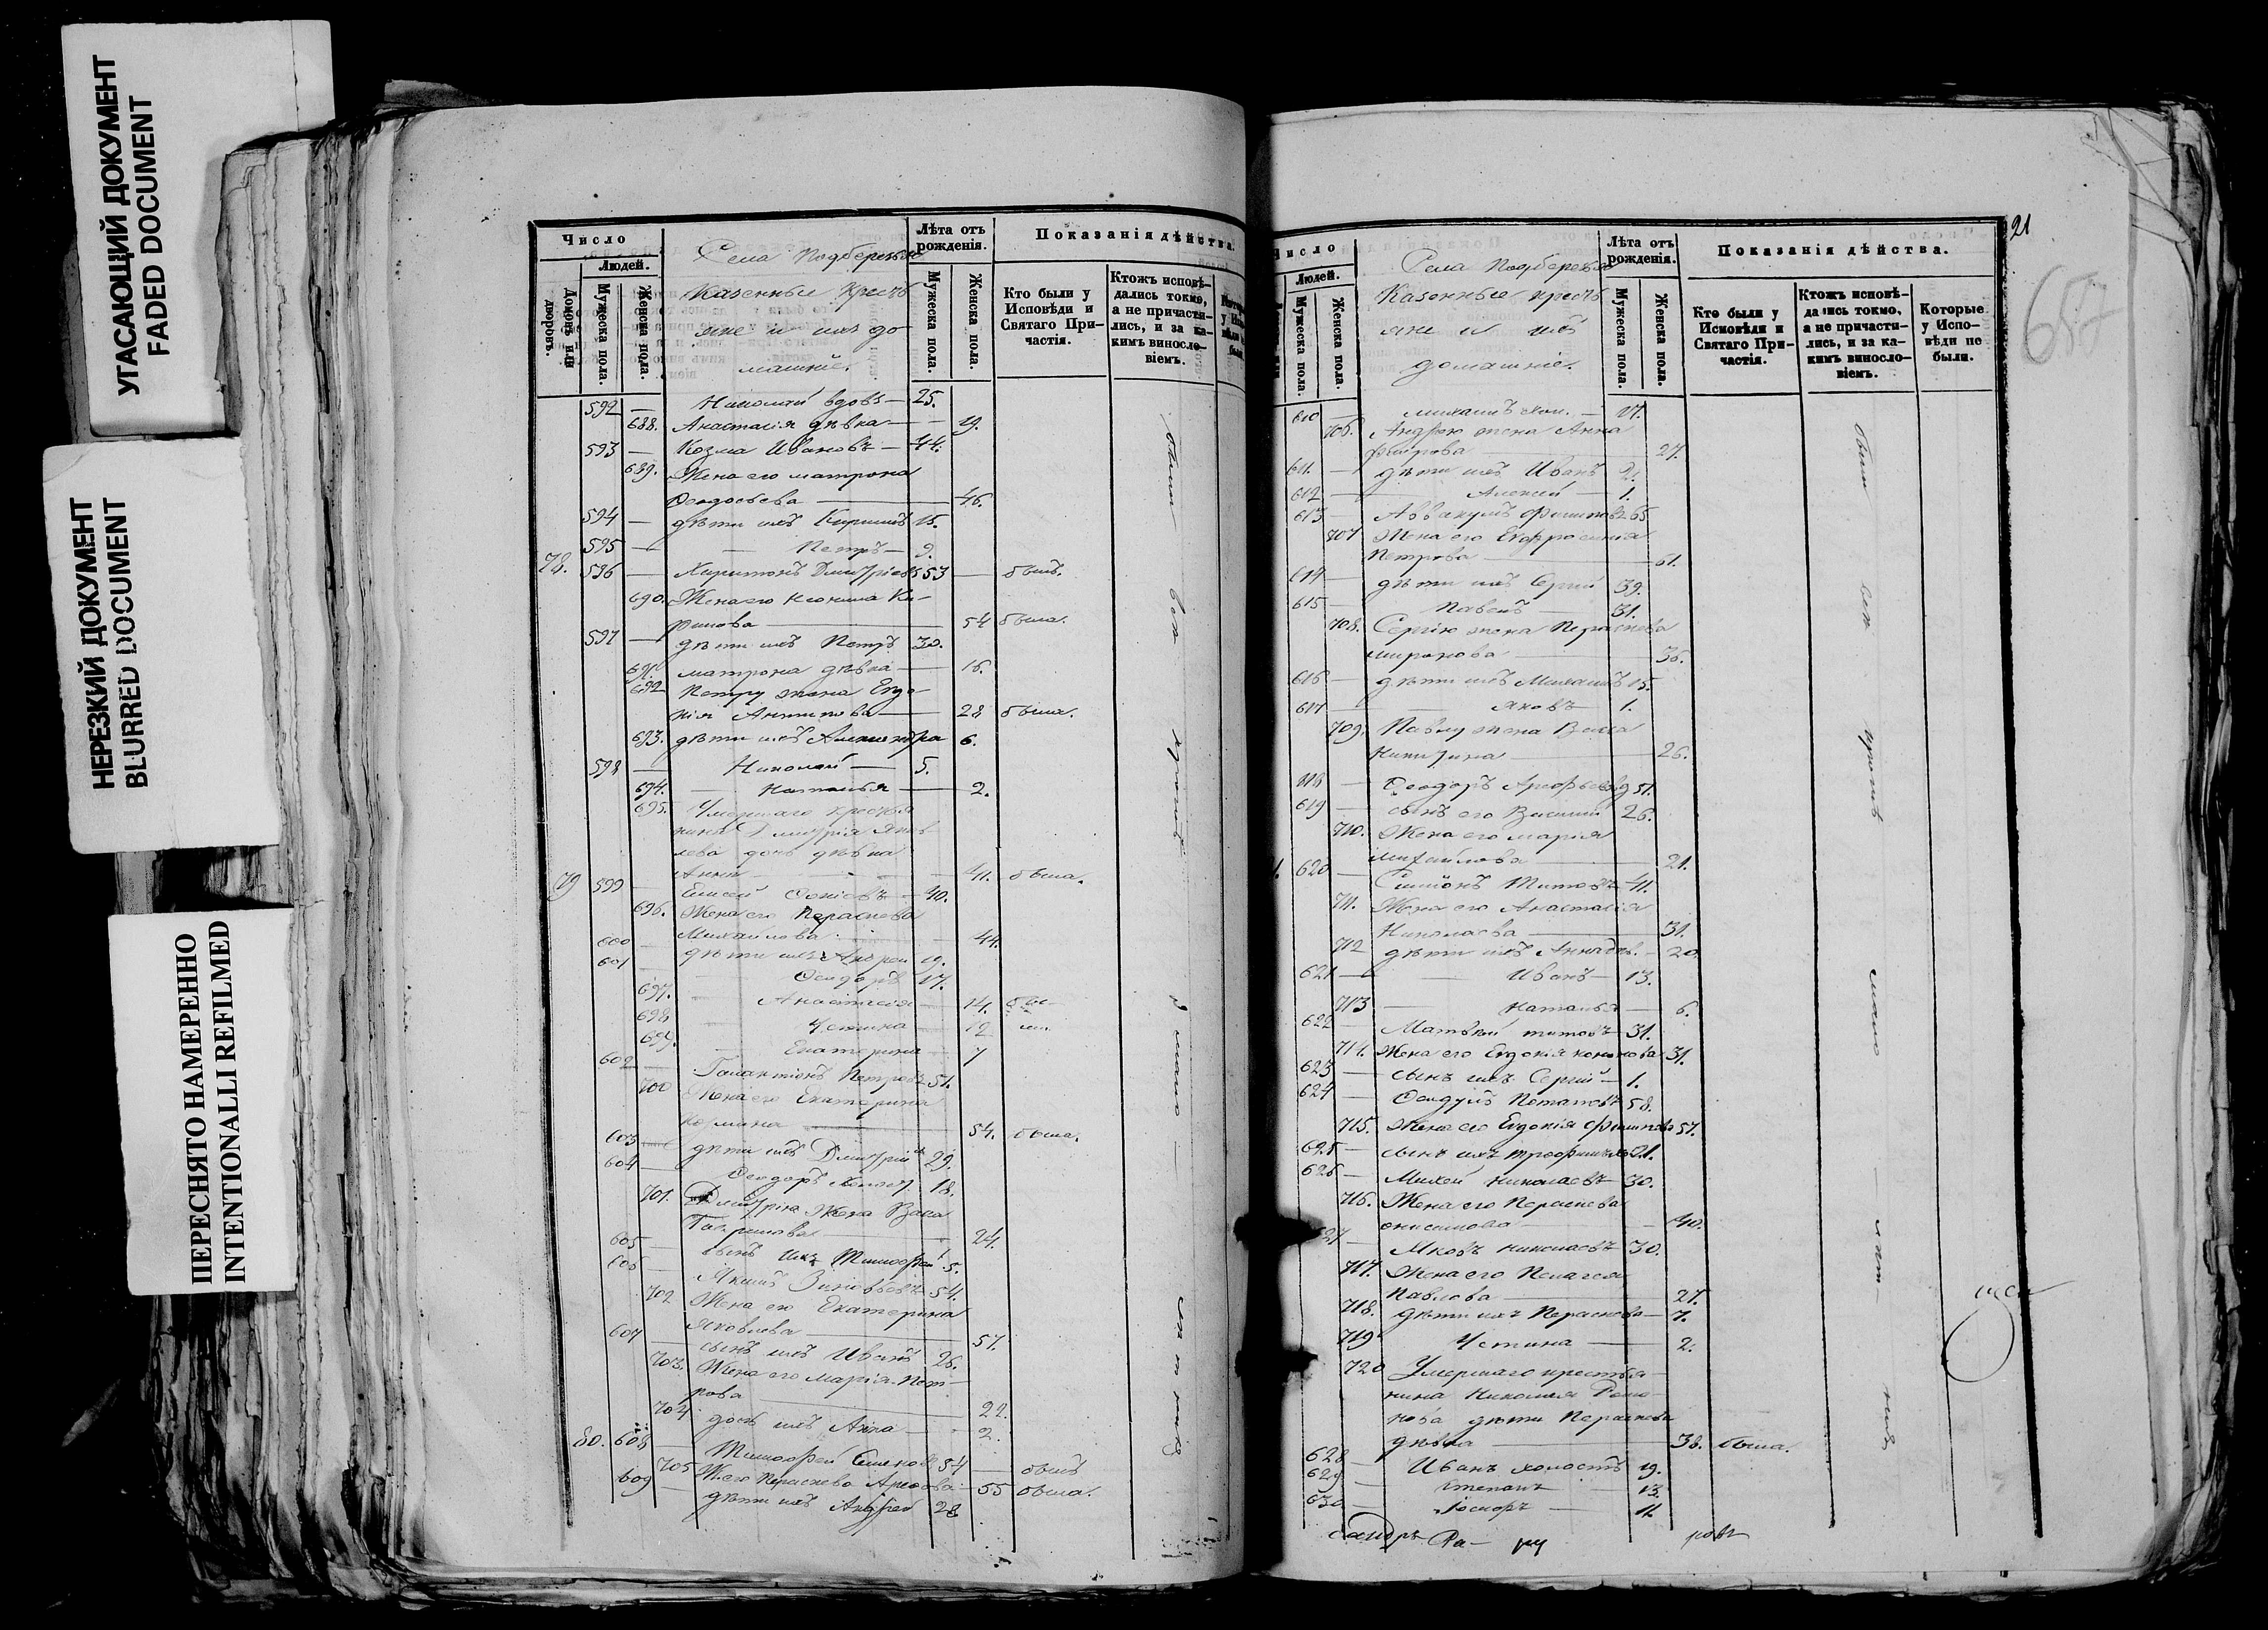 УГАСАЮЩИЙ ДОКУМЕНТ
FADED DOCUMENT
НЕРЕЗКИЙ ДОКУМЕНТ
BLURRED DOCUMENT
ПЕРЕСНЯТО НАМЕРЕННО
INTENTIONALLI REFILMED
Число
Людей.
Домовъ или дворовъ.
Мужеска пола.
Женска пола.
Села Подберезья
Казенные крестьяне и ихъ домашніе.
Лѣта отъ рожденія.
Мужеска пола.
Женска пола.
Показанія дѣйства.
Кто были у Исповѣди и Святаго Причастія.
Ктожъ исповѣдались токмо, а не причастились, и за какимъ винословіемъ.
592 — Николай вдовъ — 25.
688. Анастасія дѣвка — 19.
593 — Козма Ивановъ — 44.
689. Жена его Матрона
Ѳеодосьева — 46.
594 — дѣти ихъ Кирилъ 15.
595 — Петръ — 9.
78. 596 — Харитонъ Дмитріевъ 53 — былъ.
690. Жена его
54 была.
597 — дѣти ихъ Петръ 30.
691. Матрона дѣвка — 16.
692 Петру жена Евдо-
кія Антипова — 28 была.
693. дѣти ихъ Александра 6.
598 — Николай — 5.
694. — Наталья — 2.
695. Умершаго крестья-
нина Дмитрія Яков-
лева дочь дѣвка
Анна — 41. была.
79 599 — Елисей — 40.
696. Жена его Параскева
Михайлова — 44.
600 — дѣти ихъ Андрей 19.
601 — Ѳеодоръ 17.
697. Анастасія — 14.
698 Устина — 12
699. Екатерина — 7
602 — Галактіонъ Петровъ 51.
700 Жена его Екатерина
54. была.
603 — дѣти ихъ Дмитрій 29.
604 — Ѳеодоръ холост. 18.
701. Дмитрія жена Васса
Гаврилова — 24.
605 — сынъ ихъ Тимофей 5.
606 — Якимъ Зиновьевъ 54.
702 Жена его Екатерина
Яковлева — 51.
607 — сынъ ихъ Иванъ 26.
703. Жена его Марія Пет-
рова — 22.
704 дочь ихъ Анна — 2.
80. 608 — Тимофей Семеновъ 54 — былъ
705 Ж. его Параскева 55 была.
609 — дѣти ихъ Андрей 28
были всѣ кромѣ
21
657
Число
Людей.
Мужеска пола.
Женска пола.
Села Подберезья
Казенные крестьяне и ихъ
домашніе.
Лѣта отъ рожденія.
Мужеска пола.
Женска пола.
Показанія дѣйства.
Кто были у Исповѣди и Святаго Причастія.
Ктожъ исповѣдались токмо, а не причастились, и за какимъ винословіемъ.
Которые у Исповѣди не были.
610 — Михаилъ хол. — 17.
706. Андрею жена Анна
27.
611. — дѣти ихъ Иванъ 2.
612 — Алексей — 1.
613 — Аввакумъ Филиповъ 65
707 Жена его Евфросинія
Петрова — 61.
614 — дѣти ихъ Сергій 39.
615 — Павелъ — 31.
708. Сергію жена Параскева
Миронова — 36.
616 — дѣти ихъ Михаилъ 15.
617 — Яковъ — 1.
709. Павлу жена Васса
Никитина — 26.
618 — Ѳеодоръ 51.
619 — сынъ его Василій 26.
710. Жена его Марія
Михайлова — 21.
620 — Симеонъ Титовъ 41.
711. Жена его Анастасія
Николаева — 31.
712 дѣти ихъ Анна дѣв. — 20
621 — Иванъ — 13.
713 — Наталья — 6.
622 — Матѳей Титовъ 31.
714. Жена его Евдокія Кононова 31.
623 — сынъ ихъ Сергій — 1.
624 — Ѳеодулъ Потаповъ 58.
715. Жена его Евдокія Филипова 57.
625 — сынъ ихъ Трофимъ 21.
626 — Михей Николаевъ 30.
716. Жена его Параскева
Онисимова — 40.
627 — Яковъ Николаевъ 30.
717. Жена его Пелагея
Павлова — 27.
718. дѣти ихъ Параскева — 7.
719 Устина — 2.
720 Умершаго крестья-
нина Николая Рома-
нова дѣти Параскева
дѣвка — 38. была.
628 — Иванъ холостъ 19.
629 — Степанъ — 13.
630 — 11.
были всѣ кромѣ